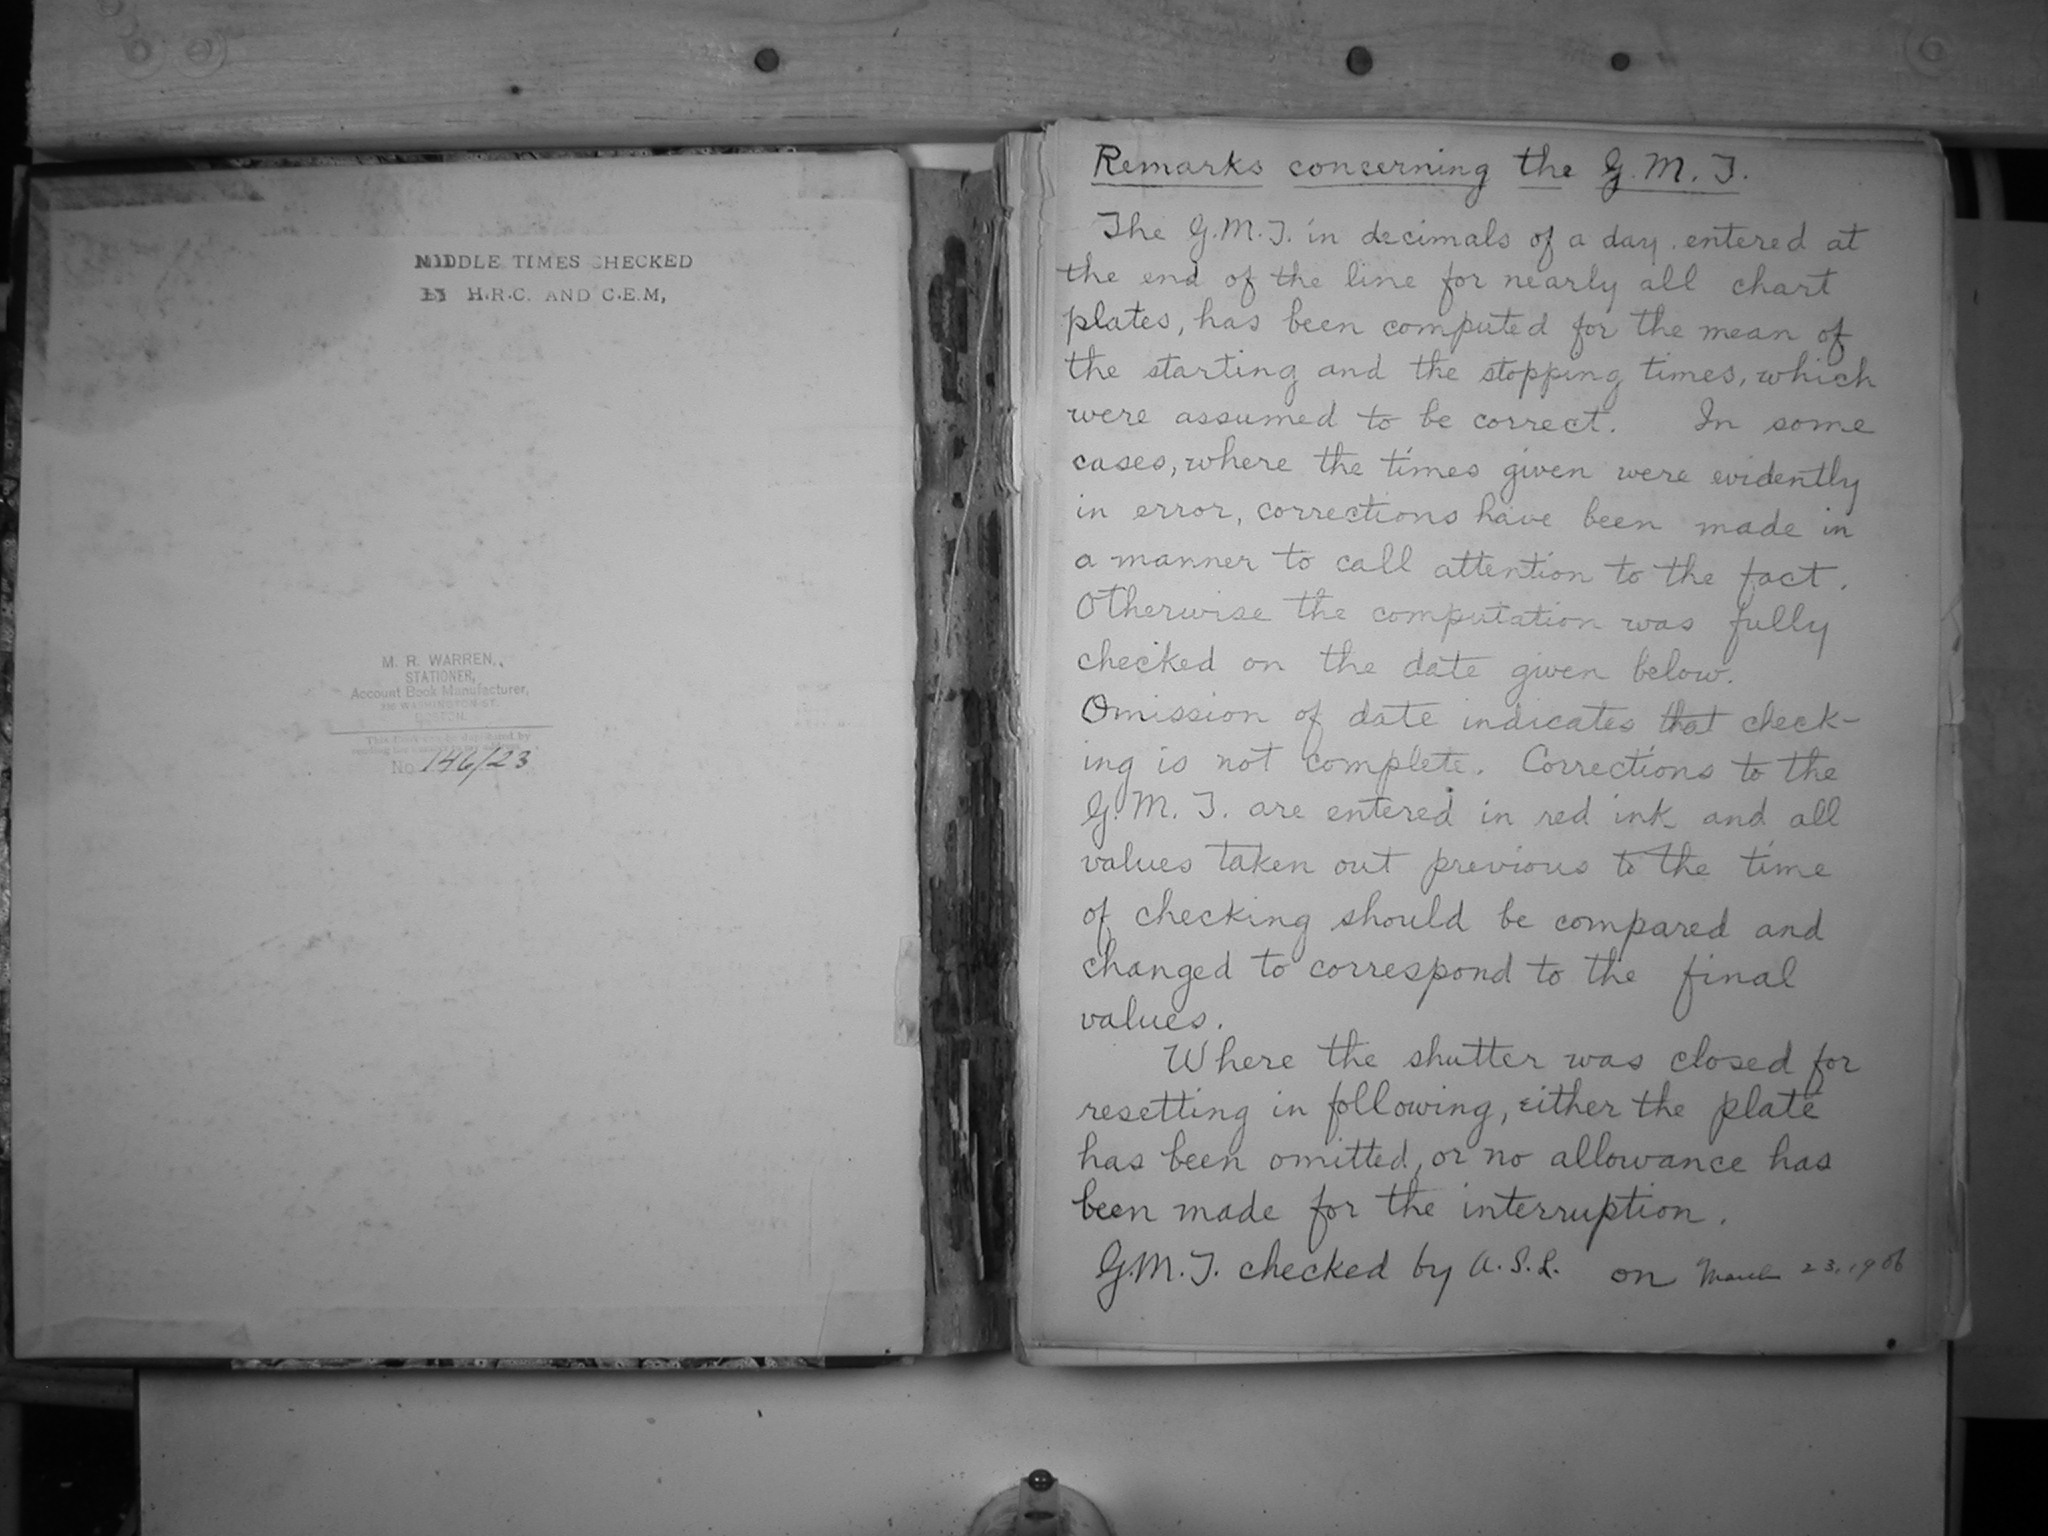 MIDDLE TIMES CHECKED
BY H.R.C. AND C.E.M,
M. R. WARREN,
STATIONER,
Account Book Manufacturer,
WASHINGTON ST.
BOSTON.
This Book can be duplicated by
No 146/23
Remarks concerning the G. M. T.
The G.M.T. in decimals of a day entered at
the end of the line for nearly all chart
plates, has been computed for the mean of
the starting and the stopping times, which
were assumed to be correct. In some
cases, where the times given were evidently
in error, corrections have been made in
a manner to call attention to the fact.
Otherwise the computation was fully
checked on the date given below.
Omission of date indicates that check-
ing is not complete. Corrections to the
G. M. T. are entered in red ink and all
values taken out previous to the time
of checking should be compared and
changed to correspond to the final
values.
Where the shutter was closed for
resetting in following, either the plate
has been omitted, or no allowance has
been made for the interruption.
G.M.T. checked by A. S. L. on March 23, 1906